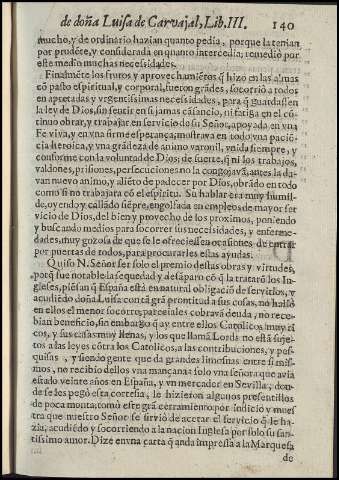 de doña Luisa de Carvajal, Lib. III. 140
mucho, y de ordinario hazian quanto pedia, porque la tenian
por prudēte, y considerada en quanto intercedia; remediò por
este medio muchas necessidades.
Finalmēte los frutos y aprovechamiētos q̄ hizo en las almas
cō pasto espiritual, y corporal, fueron grādes, socorriò a todos
en apretadas y urgentissimas necessidades, para q̄ guardassen
la ley de Dios, sin sentir en si jamas cāsancio, ni fatiga en el cō-
tinuo obrar, y trabajar en servicio de su Señor, apoyada en vna
Fe viva, y en vna firme esperança, mostrava en todo vna pacié-
cia heroica, y vna grādeza de animo varonil, vnida siempre, y
conforme con la voluntad de Dios; de suerte, q̄ ni los trabajos,
valdones, prisiones, persecuciones no la congojavā, antes la da-
van nuevo animo, y aliēto de padecer por Dios, obrādo en todo
como si no trabajara cō el espiritu. Su hablar era muy humil-
de, oyendo y callādo siēpre, engolfada en empleos de mayor ser
vicio de Dios, del bien y provecho de los proximos, poniendo
y buscando medios para socorrer sus necessidades, y enferme-
dades, muy gozosa de que se le ofreciessen ocasiones de entrar
por puertas de todos, para procurarles estas ayudas.
Quiso N. Señor ser solo el premio destas obras y virtudes,
porq̄ fue notable la sequedad y desāparo cō q̄ la trataró los In-
gleses, piēsan q̄ España està en natural obligació de servirlos, y
acudiēdo doña Luisa con tā grā prontitud a sus cosas, no hallò
en ellos el menor socorro; parecíales cobrava deuda, no rece-
bian beneficio, sin embargo q̄ ay entre ellos Catolicos muy ri
cos, y sus casas muy llenas, y los que llamā Lords no estā suje-
tos a las leyes cōtra los Catolicos, a las contribuciones, y pes-
quisas, y siendo gente que da grandes limosnas entre si mis-
mos, no recibio dellos vna mançana: solo vna señora que avia
estado veinte años en España, y vn mercader en Sevilla, don-
de se les pegò esta cortesia, le hizieron algunos presentillos
de poca monta; tomò este grā cerramiento por indicio y mues
tra que nuestro Señor se sirviò de acetar el servicio q̄ le ha-
zia, acudiēdo y socorriendo a la nacion Inglesa por solo su san-
tissimo amor. Dize en vna carta q̄ anda impressa a la Marquesa
de